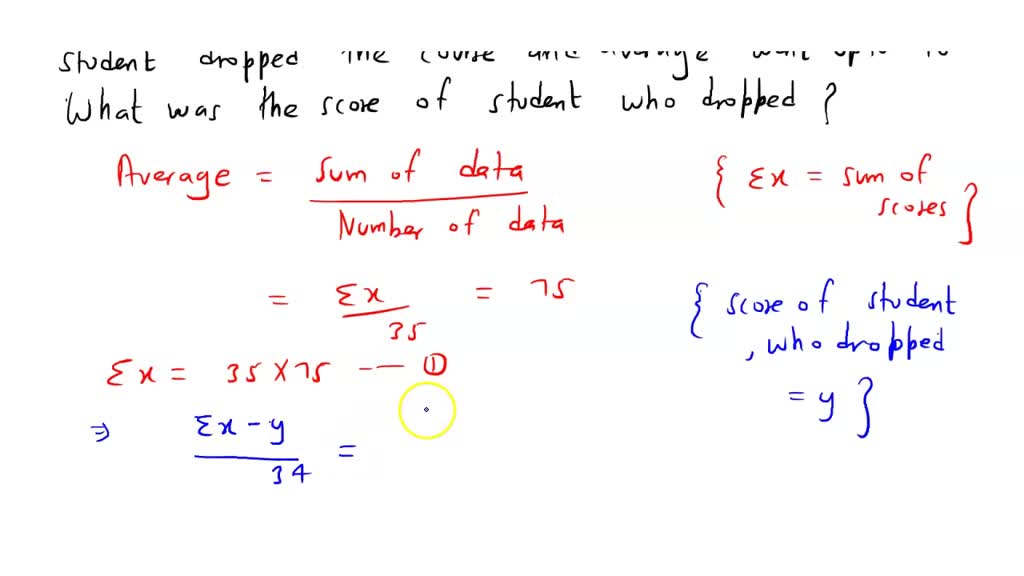 student dropped the course and average went up to
What was the score of student who dropped ?
Average = Sum of data
Number of data
{ Σx = sum of
scores }
= Σx = 75
35
{ score of student
, who dropped
= y }
Σx = 35 × 75 -— ①
⇒ Σx - y =
34